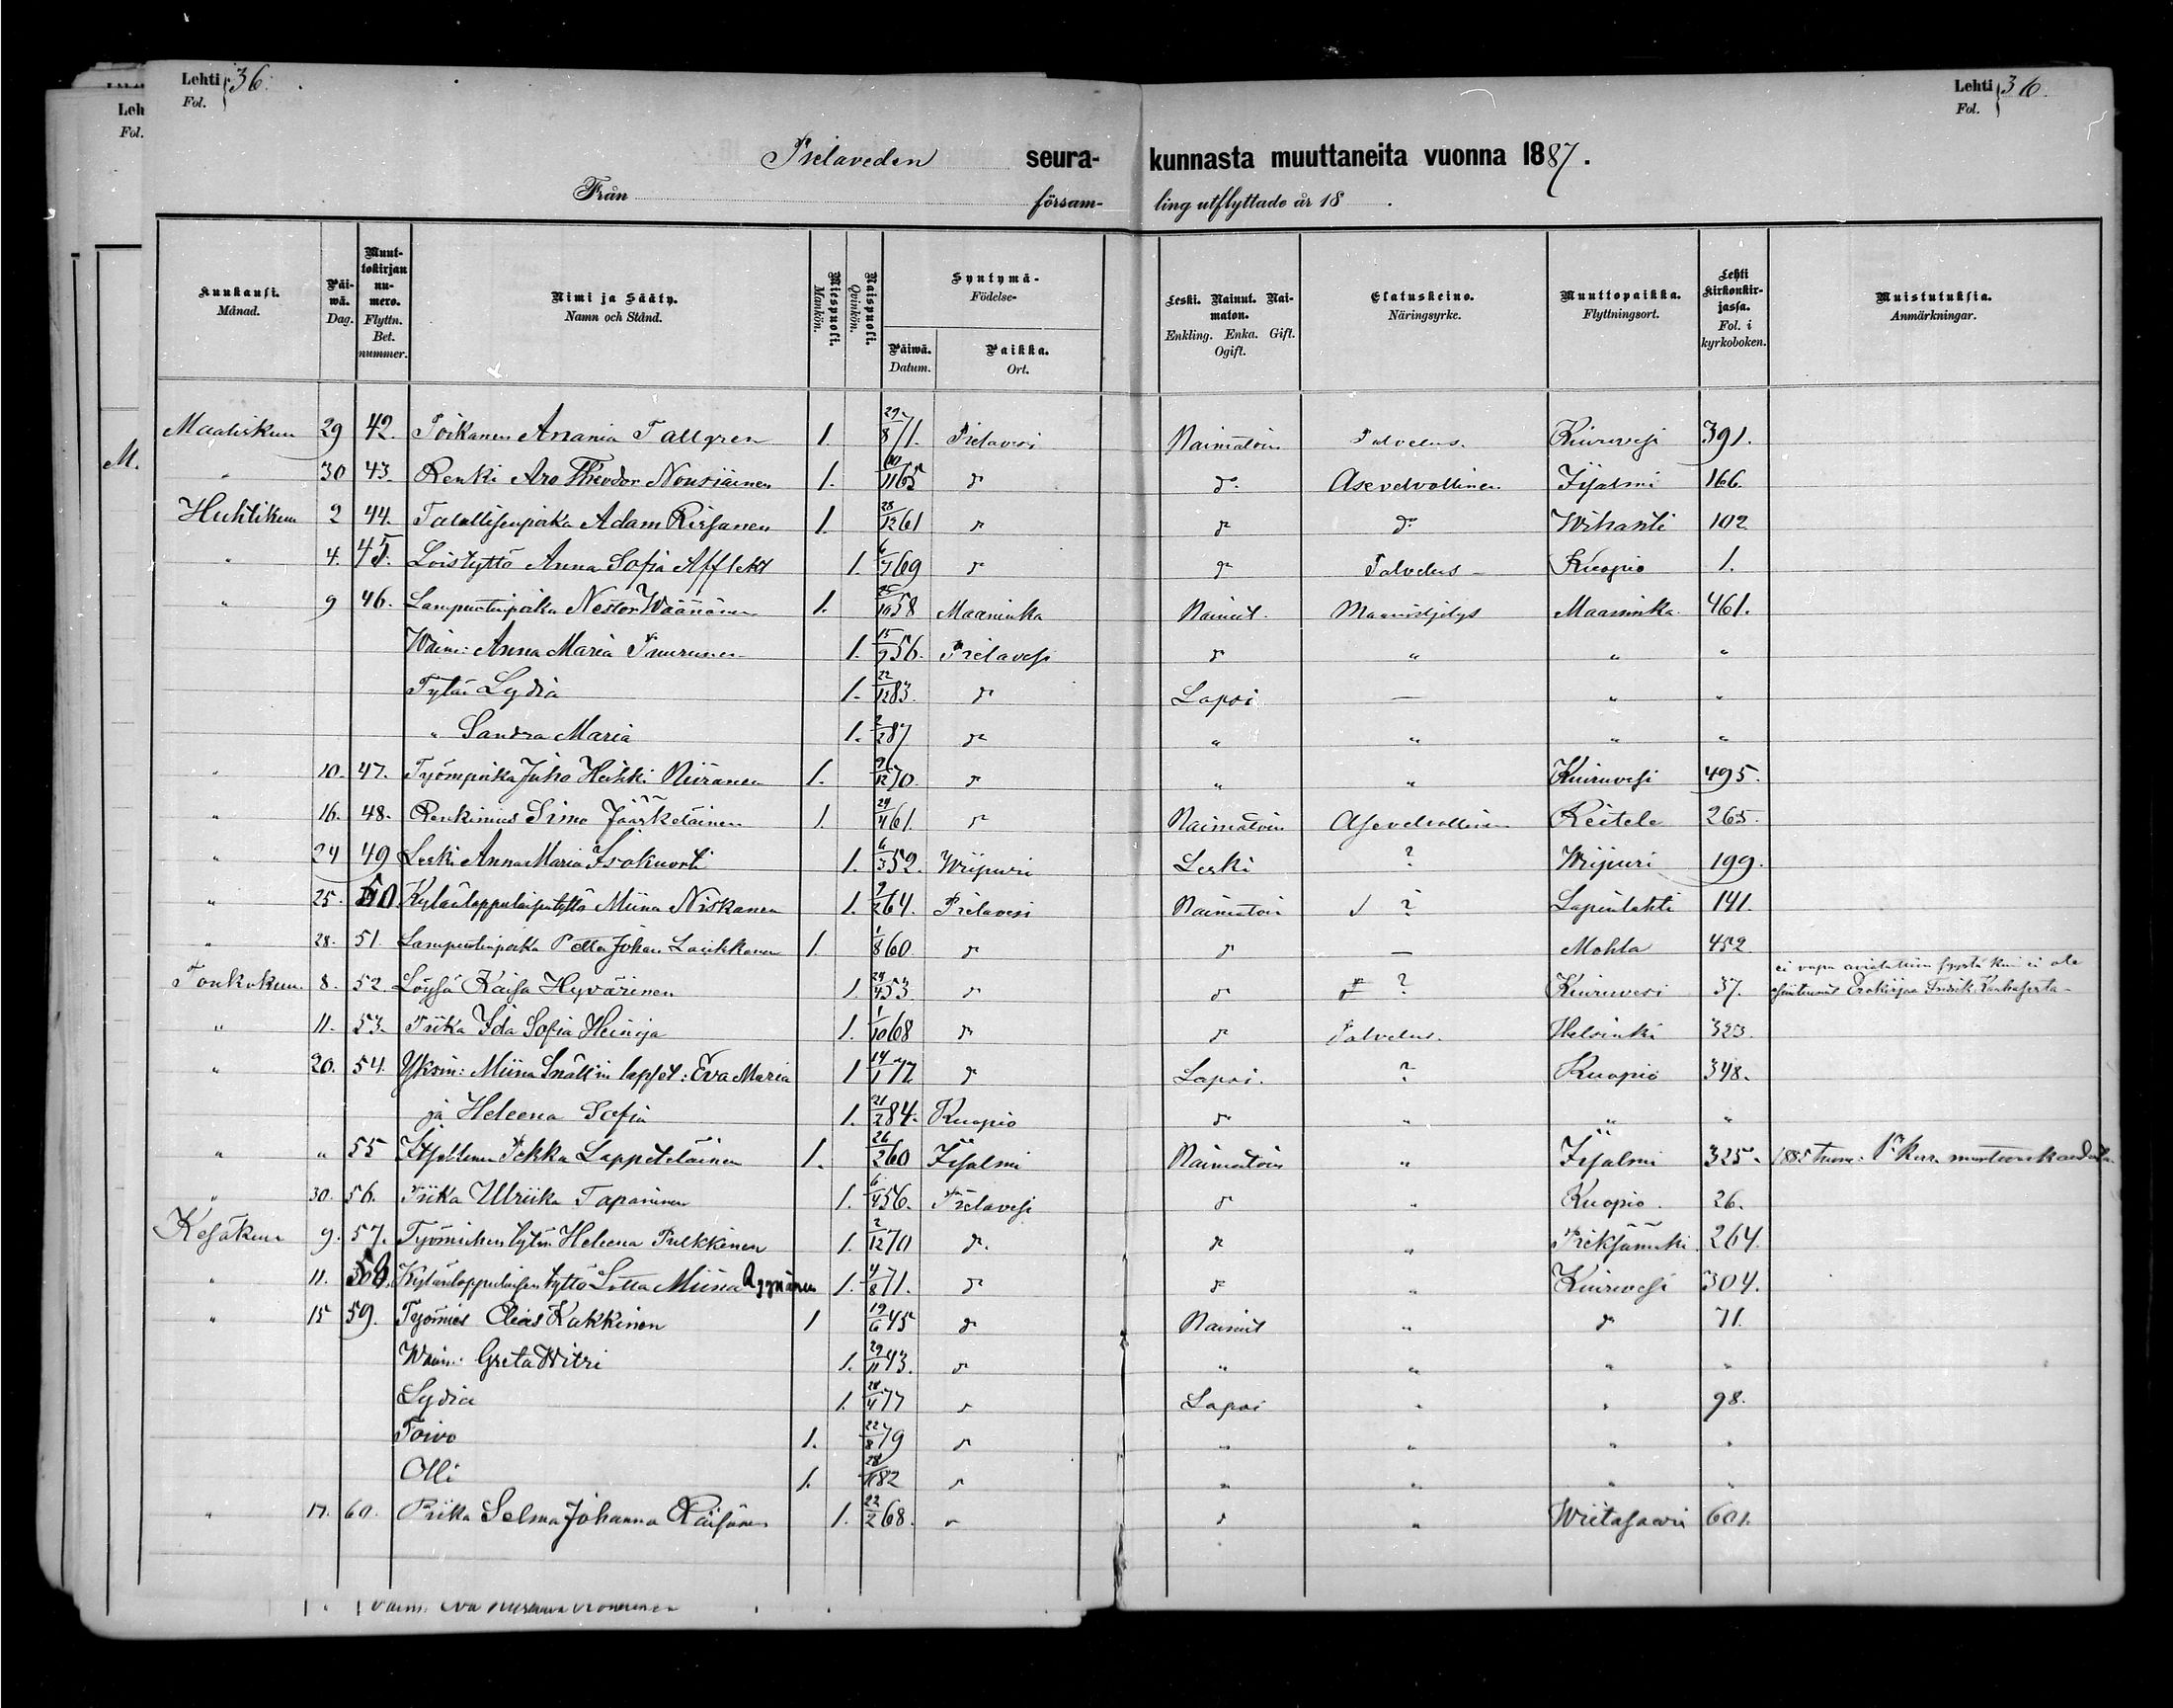 Lehti 36.
Fol.
Lehti 36.
Fol.
Leh
Fol.
Pielaveden seura- kunnasta muuttaneita vuonna 1887.
Från försam- ling utflyttade år 18 .
Kuukausi. Månad.
Päiwä. Dag.
Muuttokirjan numero. Flyttn. Bet. nummer.
Nimi ja Sääty. Namn och Stånd.
Miespuoli. Mankön.
Naispuoli. Qvinkön.
Syntymä- Födelse-
Päiwä. Datum.
Paikka. Ort.
Leski. Nainut. Naimaton. Enkling. Enka. Gift. Ogift.
Elatuskeino. Näringsyrke.
Muuttopaikka. Flyttningsort.
Lehti Kirkonkirjassa. Fol. i kyrkoboken.
Muistutuksia. Anmärkningar.
M.
Maaliskuu 29 42. Poikanen Anania Tallgren 1. 29/8 71. Pielavesi Naimatoin Palvelus. Kiuruvesi 391.
" 30 43. Renki Aro Theodor Nousiainen 1. 11 65 do do Asevelvollinen Iisalmi 166.
Huhtikuu 2 44. Talollisenpoika Adam Rissanen 1. 28/12 61 do do do Wihanti 102
" 4. 45. Loistyttö Anna Sofia Afflekt 1. 69 do do Palvelus Kuopio 1.
" 9 46. Lampuotinpoika Nestor Wäänänen 1. 25/10 58 Maaninka Nainut. Maanviljelys Maaninka 461.
Waim: Anna Maria 1. 15/9 56. Pielavesi do " " "
Tytär Lydia 1. 22/12 83. do Lapsi — " "
" Sandra Maria 1. 2/2 87 do " " " "
" 10. 47. Työmpoika Juho Heikki Niiranen 1. 12 70. do " " Kiuruvesi 495.
" 16. 48. Renkimies Simo Jääskeläinen 1. 29/4 61. do Naimatoin Asevelvollinen Keitele 265.
" 24 49 Leski Anna Maria Isokuorti 1. 6/3 52. Wiipuri Leski ? Wiipuri 199.
" 25. 50 Kylänloppulaisen tyttö Miina Niskanen 1. 9/2 64. Pielavesi Naimatoin ? Lapinlahti 141.
" 28. 51. Lampuotinpoika Petter Johan Laukkanen 1. 1/8 60. do do — Mohla 452.
Toukokuu. 8. 52. Löysä Kaisa Hyvärinen 1. 29/4 53. do do ? Kiuruvesi 37. ei vapa
" 11. 53. Piika Ida Sofia Heinoja 1. 1/10 68 do do Palvelus. Helsinki 323.
" 20. 54. Yksin: Miina Snällin lapset: Eva Maria 1 14/1 77. do Lapsi. ? Kuopio 348.
ja Heleena Sofia 1. 21/2 84. Kuopio do " " "
" " 55 Itsellinen Pekka Lappeteläinen 1. 26/2 60 Iisalmi Naimatoin " Iisalmi 325.
" 30. 56. Piika Ulriika Tapaninen 1. 6/4 56. Pielavesi do " Kuopio. 26.
Kesäkuu 9. 57. Työmiehen tytär Heleena Pulkkinen 1. 2/12 70 do. do " Pieksämäki. 264.
" 11. 58. Kylänloppulaisen tyttö Lotta Miina Ryynänen 1. 4/8 71. do do " Kiuruvesi 304.
" 15 59. Työmies Elias Kakkinen 1 19/6 45 do Nainut " do 71.
Waim: Greta Witri 1. 29/11 43. do " " " "
Lydia 1. 28/4 77 do Lapsi " " 98.
Toivo 1. 22/8 79 do " " " "
Olli 1. 28/11 82 do " " " "
" 17. 60. Piika Selma Johanna Räisänen 1. 22/2 68. do do " Wiitasaari 601.